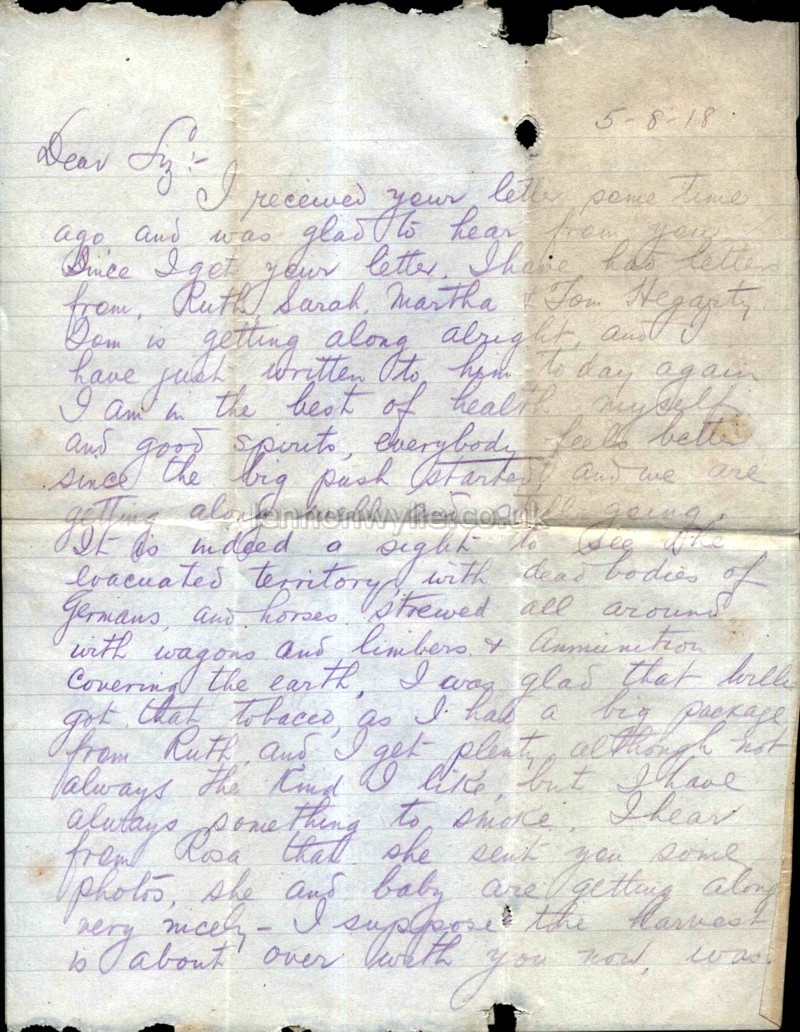 5-8-18
Dear Liz:-
I received your letter some time
ago and was glad to hear from you
Since I got your letter, I have had letters
from, Ruth, Sarah, Martha & Tom Hegarty
Tom is getting along alright, and I
have just written to him today again
I am in the best of health myself
and good spirits, everybody feels better
since the big push started, and we are
getting along well and still going.
lennonwylie.co.uk
It is indeed a sight to see the
evacuated territory, with dead bodies of
Germans, and horses strewed all around
with wagons and limbers & Ammunition
covering the earth, I was glad that Willie
got that tobacco, as I had a big package
from Ruth, and I get plenty, although not
always the kind I like, but I have
always something to smoke, I hear
from Rosa that she sent you some
photos, she and baby are getting along
very nicely - I suppose the harvest
is about over with you now, was